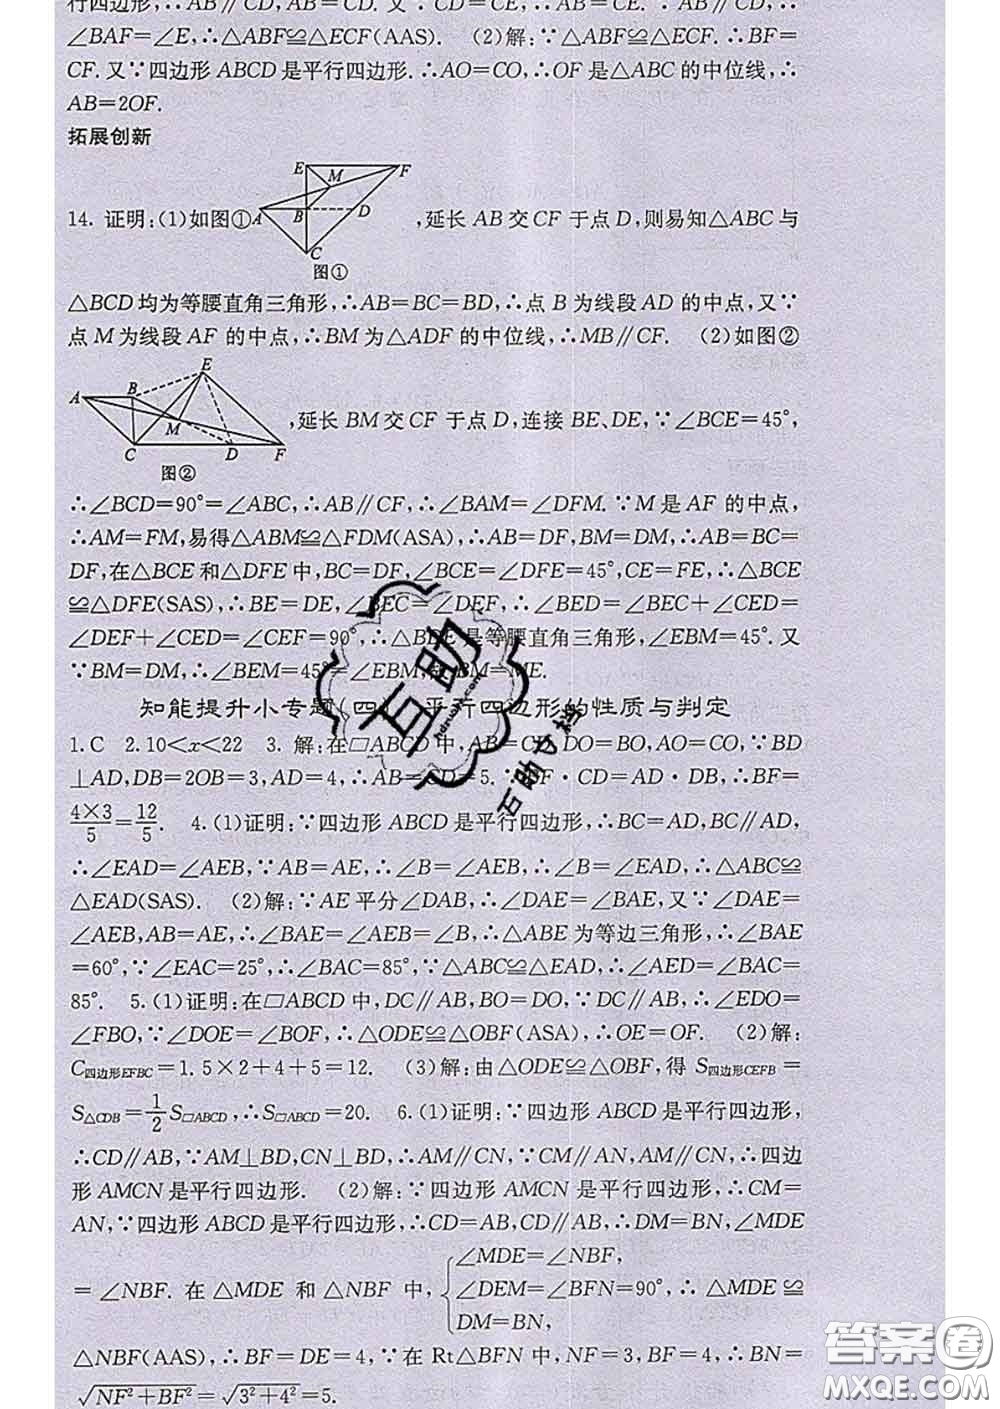 行四边形,∴AB∥CD,AB=CD. 又∵CD=CE,∴AB=CE. ∵AB∥CD,∴
∠BAF=∠E,∴△ABF≌△ECF(AAS). (2)解:∵△ABF≌△ECF. ∴BF=
CF. 又∵四边形 ABCD 是平行四边形. ∴AO=CO,∴OF 是△ABC 的中位线,∴
AB=2OF.
拓展创新
E F M A B D C
14. 证明:(1)如图① ,延长 AB 交 CF 于点 D,则易知△ABC 与
图①
△BCD 均为等腰直角三角形,∴AB=BC=BD,∴点 B 为线段 AD 的中点,又∵
点 M 为线段 AF 的中点,∴BM 为△ADF 的中位线,∴MB∥CF. (2)如图②
E B A M C D F
,延长 BM 交 CF 于点 D,连接 BE、DE,∵∠BCE=45°,
图②
∴∠BCD=90°=∠ABC,∴AB∥CF,∴∠BAM=∠DFM. ∵M 是 AF 的中点,
∴AM=FM,易得△ABM≌△FDM(ASA),∴AB=DF,BM=DM,∴AB=BC=
DF,在△BCE 和△DFE 中,BC=DF,∠BCE=∠DFE=45°,CE=FE,∴△BCE
≌△DFE(SAS),∴BE=DE,∠BEC=∠DEF,∴∠BED=∠BEC+∠CED=
∠DEF+∠CED=∠CEF=90°,∴△BDE 是等腰直角三角形,∠EBM=45°. 又
∵BM=DM,∴∠BEM=45°=∠EBM,∴BM=ME.
知能提升小专题(四) 平行四边形的性质与判定
1. C 2. 10<x<22 3. 解:在▱ABCD 中,AB=CD,DO=BO,AO=CO,∵BD
⊥AD,DB=2OB=3,AD=4,∴AB=CD=5. ∵BF·CD=AD·DB,∴BF=
4×3/5=12/5. 4. (1)证明:∵四边形 ABCD 是平行四边形,∴BC=AD,BC∥AD,
∴∠EAD=∠AEB,∵AB=AE,∴∠B=∠AEB,∴∠B=∠EAD,∴△ABC≌
△EAD(SAS). (2)解:∵AE 平分∠DAB,∴∠DAE=∠BAE,又∵∠DAE=
∠AEB,AB=AE,∴∠BAE=∠AEB=∠B,∴△ABE 为等边三角形,∴∠BAE
=60°,∵∠EAC=25°,∴∠BAC=85°,∵△ABC≌△EAD,∴∠AED=∠BAC=
85°. 5. (1)证明:在▱ABCD 中,DC∥AB,BO=DO,∵∠EDO=
∠FBO,∵∠DOE=∠BOF,∴△ODE≌△OBF(ASA),∴OE=OF. (2)解:
C四边形EFBC=1.5×2+4+5=12. (3)解:由△ODE≌△OBF,得 S四边形CEFB=
S△CDB=1/2 S▱ABCD,∴S▱ABCD=20. 6. (1)证明:∵四边形 ABCD 是平行四边形,
∴CD∥AB,∵AM⊥BD,CN⊥BD,∴AM∥CN,∵CM∥AN,AM∥CN,∴四边
形 AMCN 是平行四边形. (2)解:∵四边形 AMCN 是平行四边形,∴CM=
AN,∵四边形 ABCD 是平行四边形,∴CD=AB,CD∥AB,∴DM=BN,∠MDE
∠MDE=∠NBF,
=∠NBF. 在△MDE 和△NBF 中, ∠DEM=∠BFN=90°, ∴△MDE≌
DM=BN,
△NBF(AAS),∴BF=DE=4,∵在 Rt△BFN 中,NF=3,BF=4,∴BN=
√NF²+BF²=√3²+4²=5.
互助
Adzuoye.com
互助文档
答案圈
MXQE.COM